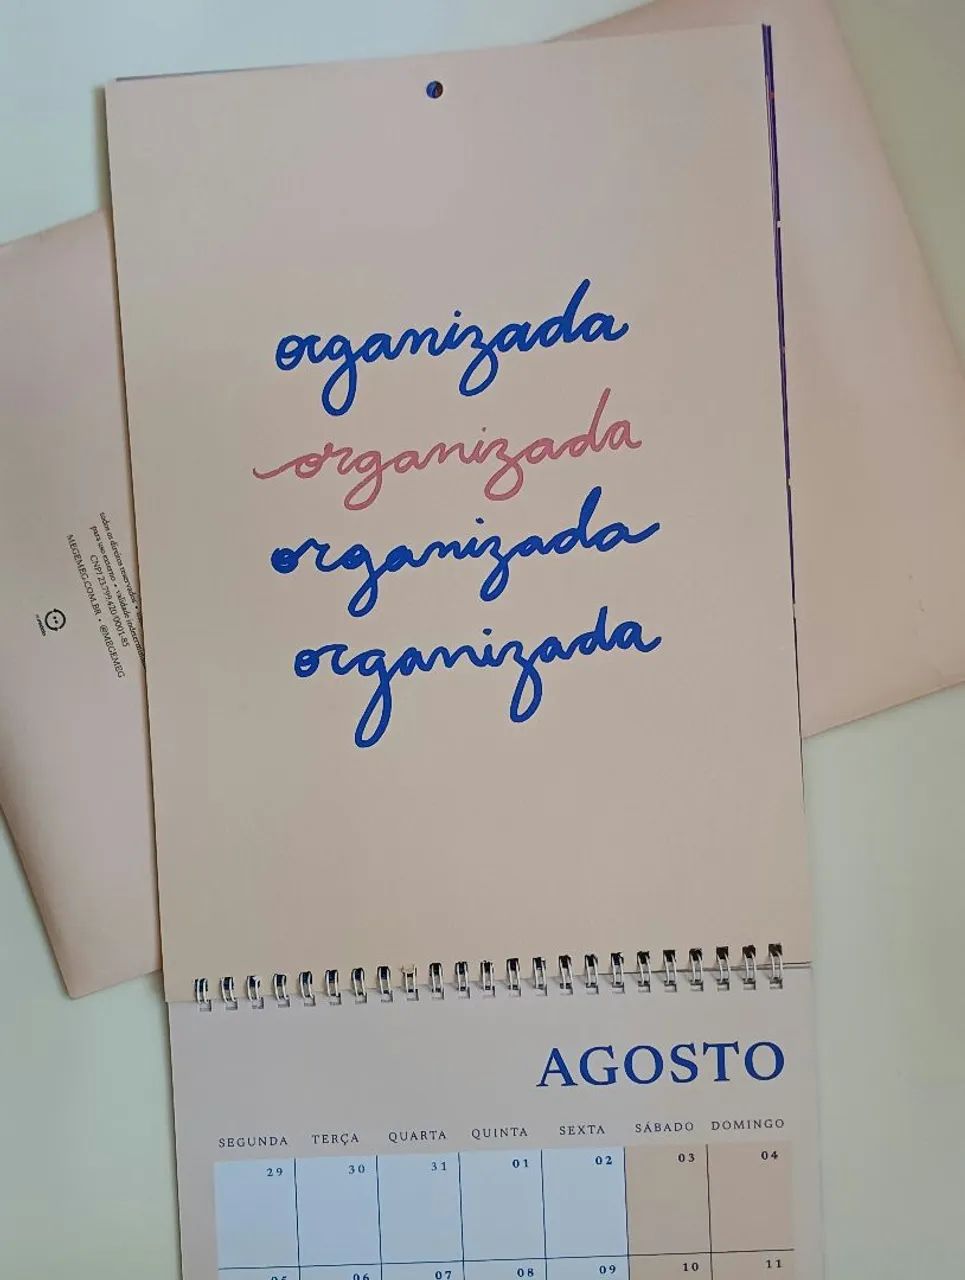 organizada
organizada
organizada
organizada
todos os direitos reservados •
para uso externo • validade indeterminada
CNPJ 23.799.420/0001-85
MEGEMEG.COM.BR • @MEGEMEG
AGOSTO
SEGUNDA TERÇA QUARTA QUINTA SEXTA SÁBADO DOMINGO
29 30 31 01 02 03 04
05 06 07 08 09 10 11